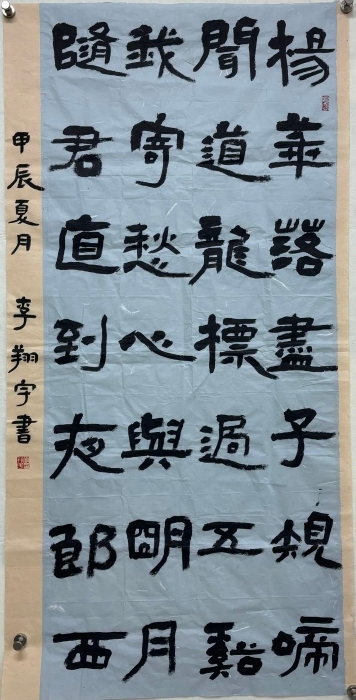 楊華落盡子規啼
聞道龍標過五谿
我寄愁心與明月
隨君直到夜郎西
甲辰夏月 李翔宇書